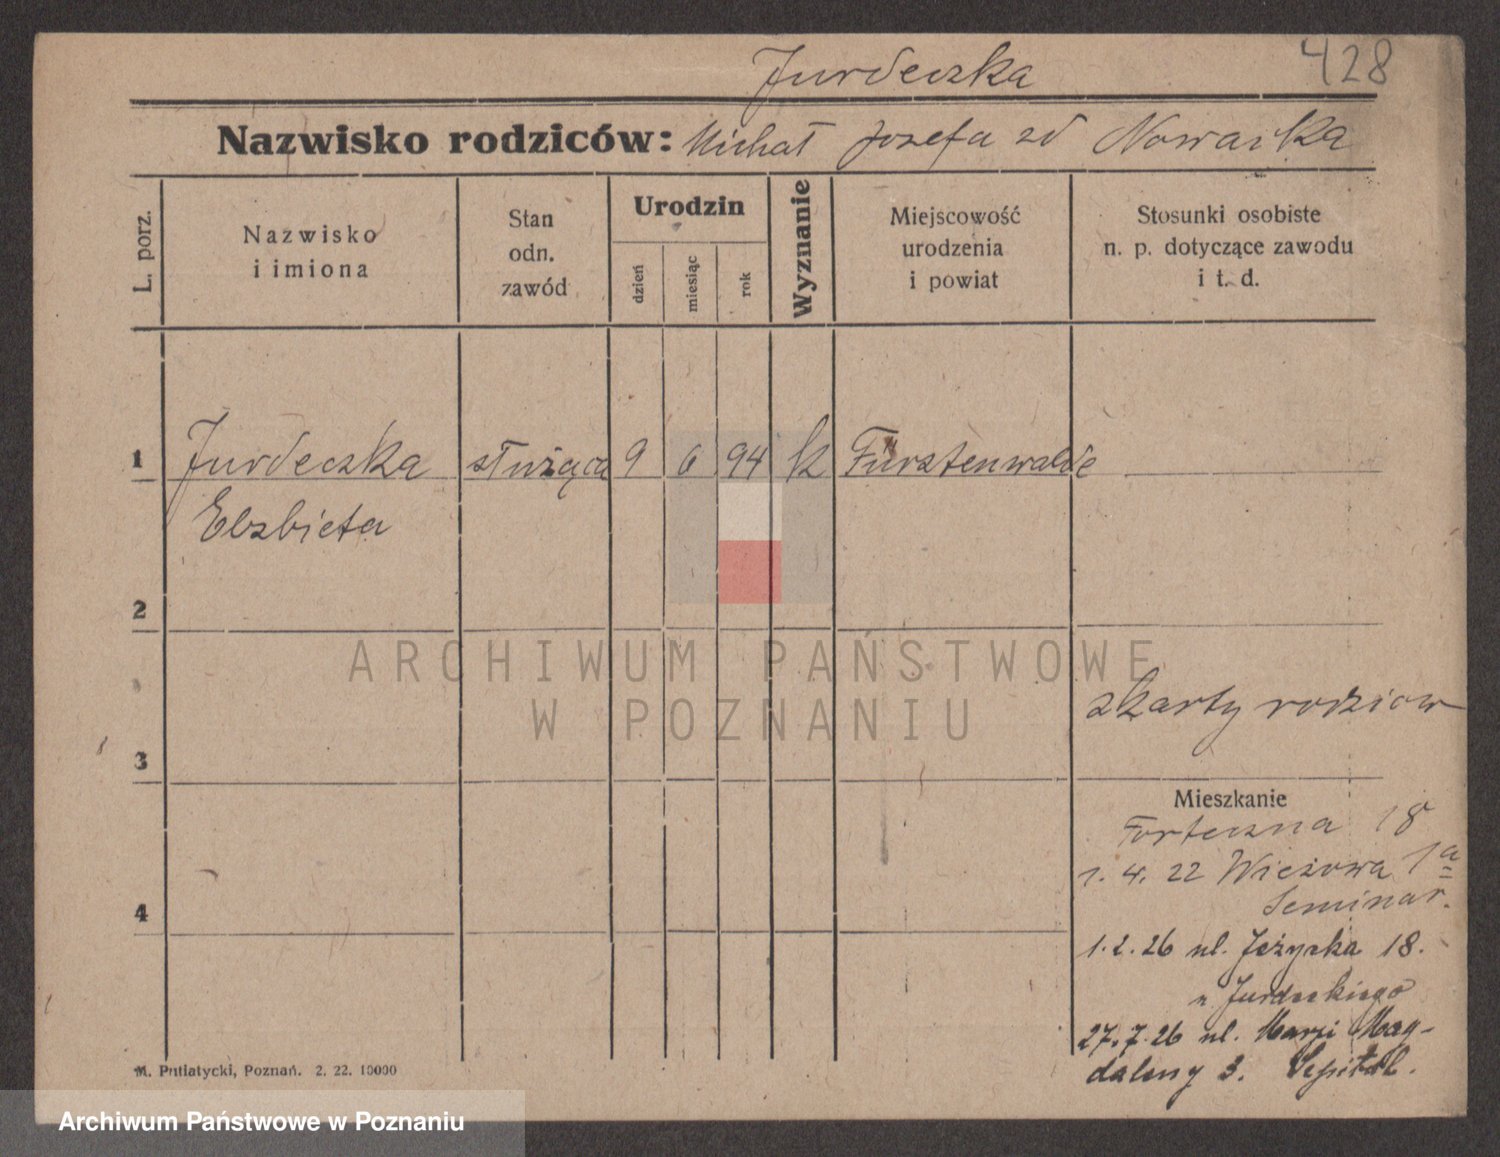 Jurdeczka 428
Nazwisko rodziców: Michał Jozefa zd Nowacka
L. porz.
Nazwisko
i imiona
Stan
odn.
zawód
Urodzin
dzień
miesiąc
rok
Wyznanie
Miejscowość
urodzenia
i powiat
Stosunki osobiste
n. p. dotyczące zawodu
i t. d.
1 Jurdeczka służąca 9 6 94 k Fürstenwalde
Elzbieta
2
ARCHIWUM PAŃSTWOWE
W POZNANIU
z karty rodziców
3
Mieszkanie
Forteczna 18
1. 4. 22 Wieżowa 1a
Seminar.
4
1. 2. 26 ul. Jeżycka 18.
u Jurdeckiego
27. 7. 26 ul. Marji Mag-
daleny 3. Szpital.
M. Putiatycki, Poznań. 2. 22. 10000
Archiwum Państwowe w Poznaniu